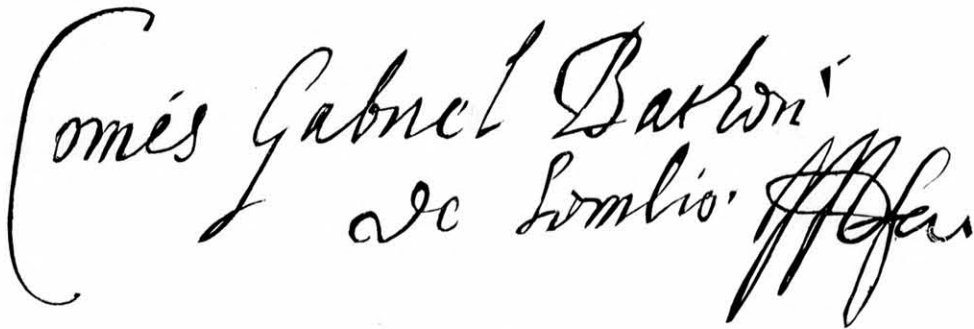 Comes Gabriel Bathori
de Somlio.